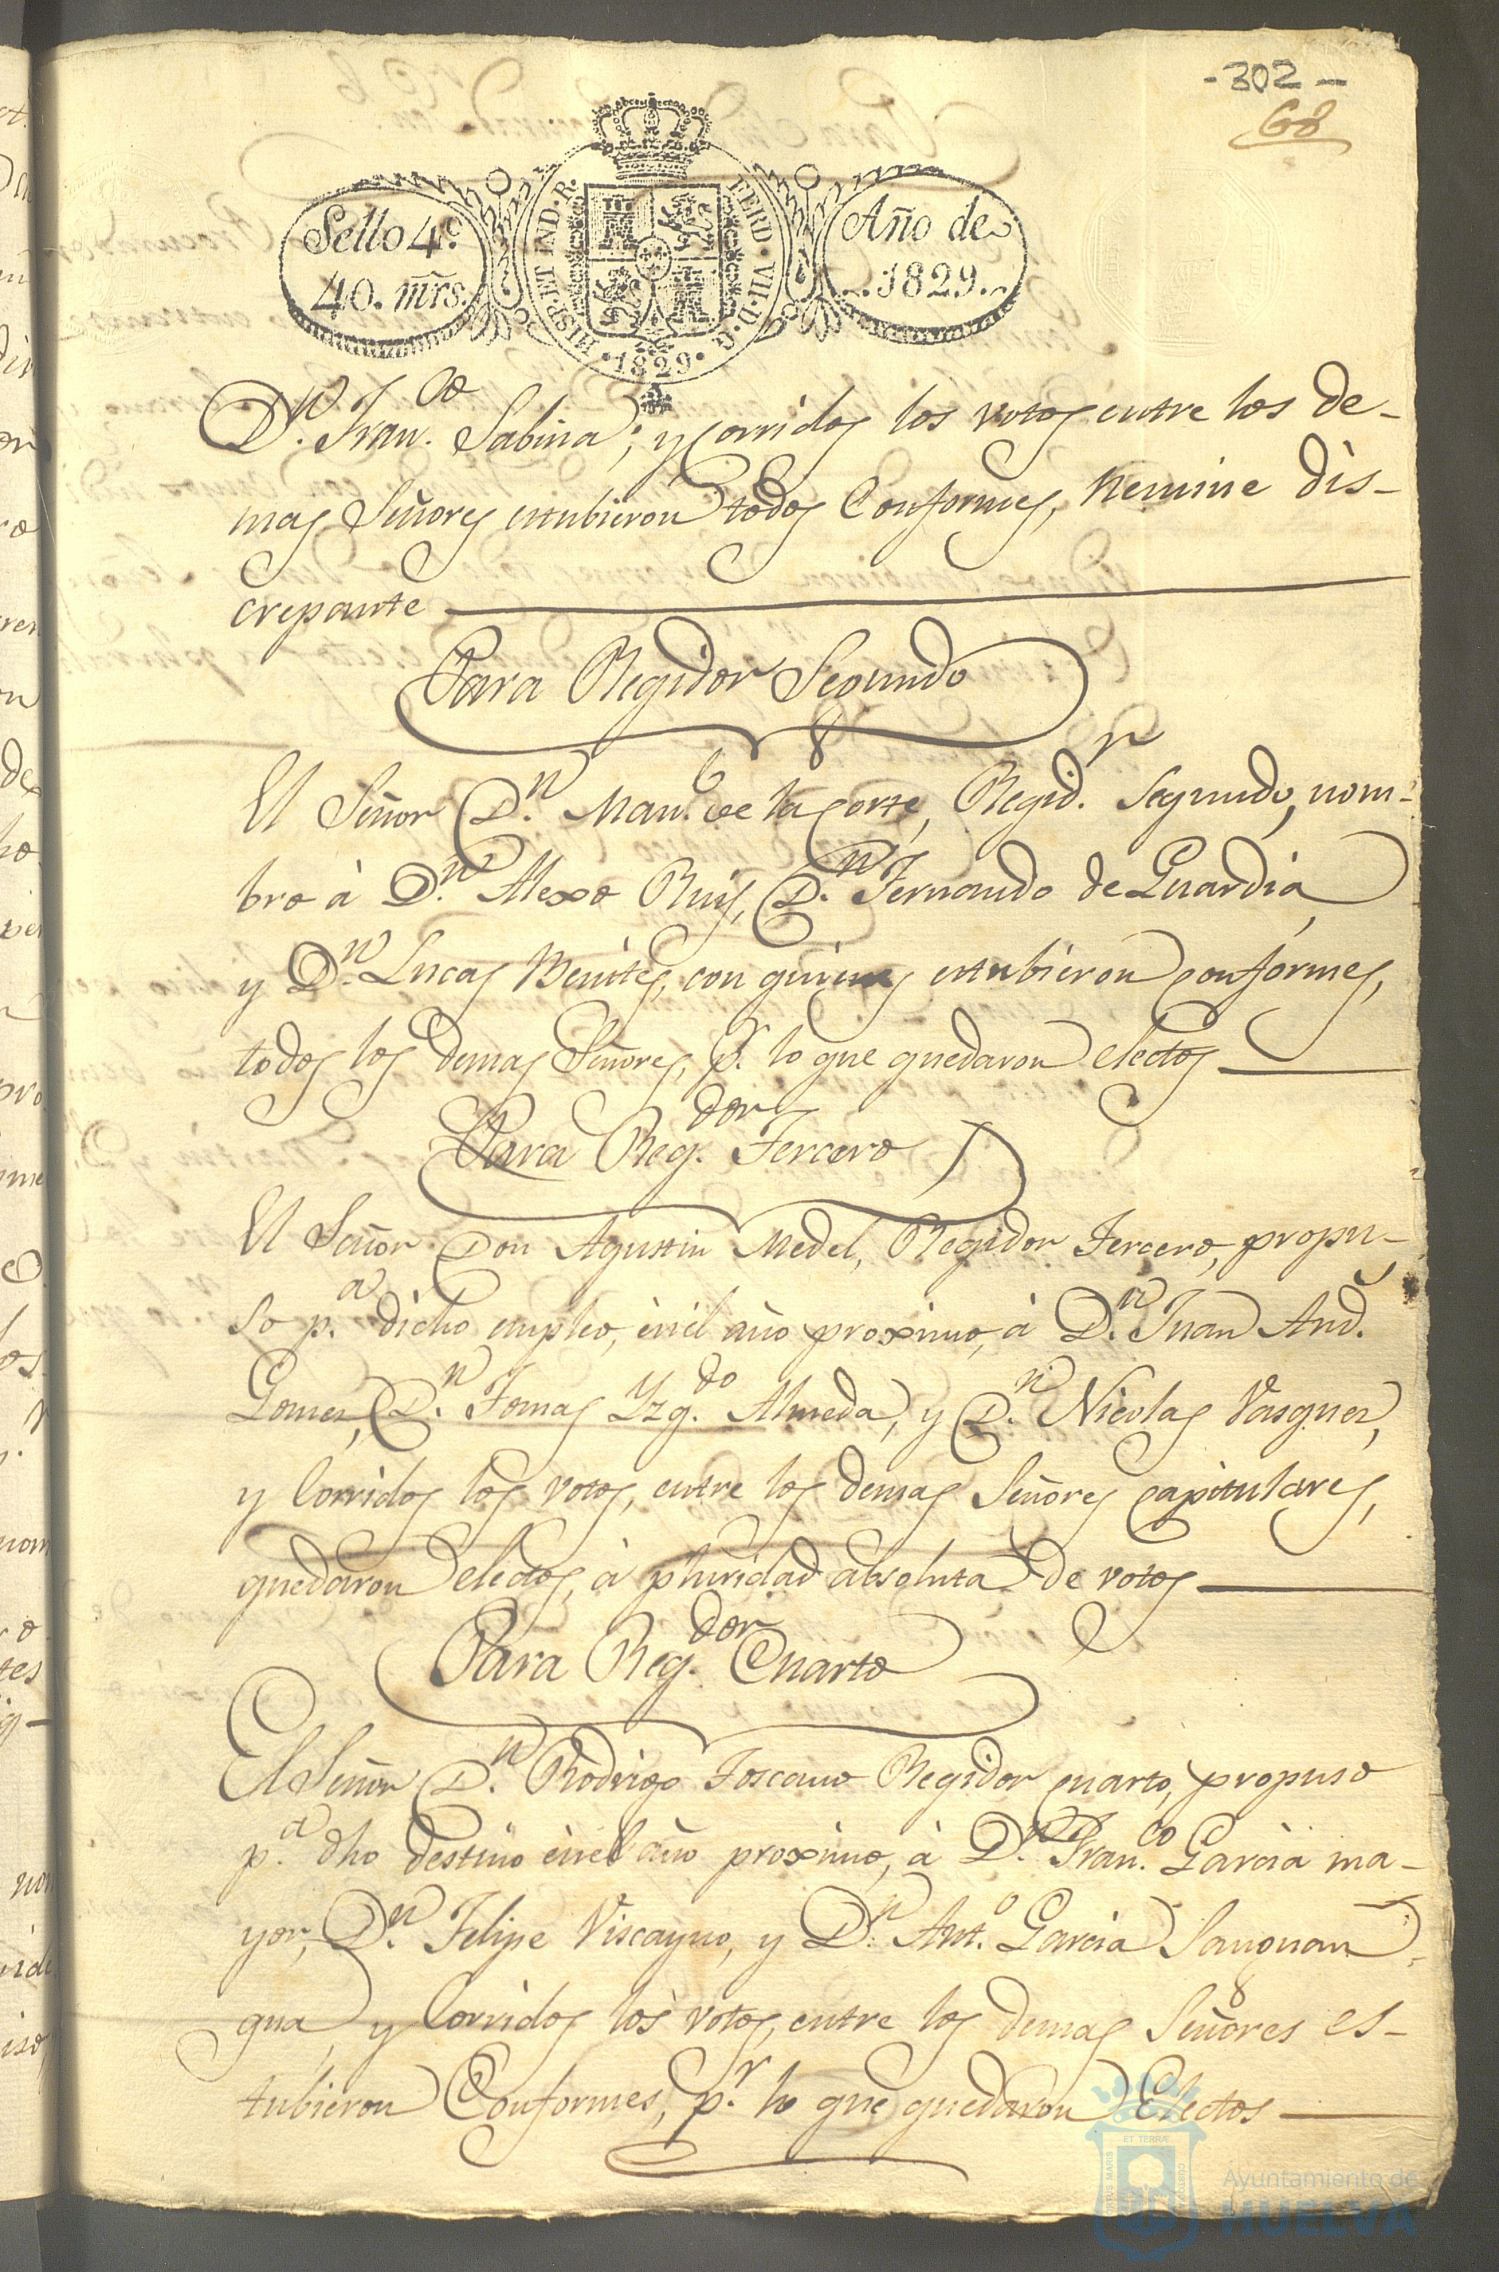 -302-
68
Sello 4º.
40. mrs.
HISP. ET IND. R.
FERD. VII. D. G.
·1829·
Año de
1829.
D.n Fran.co Sabina; y corridos los votos entre los de-
mas Señores estubieron todos Conformes, Nemine dis-
crepante
Para Regidor Segundo
El Señor D.n Man.l de la Corte, Regid.r Segundo, nom-
bro à D.n Alexo Ruiz, D.n Fernando de Guardia,
y D.n Lucas Benites, con quienes estubieron conformes,
todos los demas Señores, p.r lo que quedaron electos
Para Reg.dor Tercero
El Señor Don Agustin Medel, Regidor Tercero, propu-
so p.a dicho empleo, ènel año proximo, à D.n Juan And.s
Gomez, D.n Tomas Yzq.do Almeda, y D.n Nicolas Vasquez,
y Corridos los votos, entre los demas Señores capitulares,
quedaron electos, à pluridad absoluta de votos
Para Reg.dor Cuarto
El Señor D.n Rodrigo Toscano Regidor cuarto, propuso
p.a dho destino ènel año proximo, à D.n Fran.co Garcia ma-
yor, D.n Felipe Viscayno, y D.n Ant.o Garcia Sanguan
gua, y Corridos los votos, entre los demas Señores es-
tubieron Conformes, p.r lo que quedaron Electos
ET TERRÆ
Ayuntamiento de
HUELVA